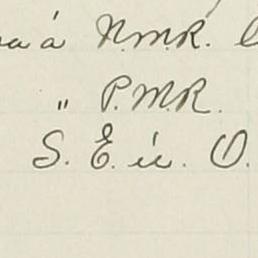 á N.M.R.
" P.M.R.
S. E. ú. O.